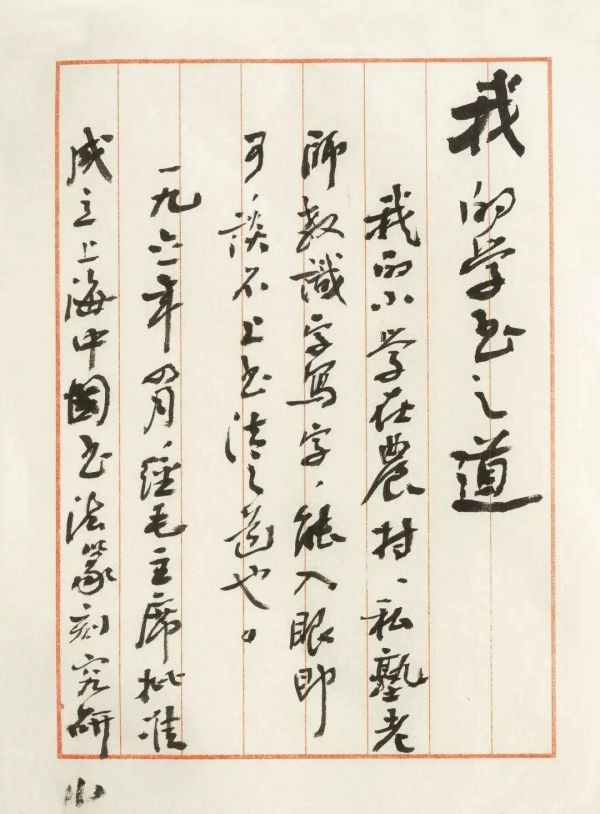 我的学书之道
我的小学在農村、私塾老
師教識字寫字,能入眼即
可,談不上书法之道也。
一九六一年四月,經毛主席批准
成立上海中國书法篆刻究研
小